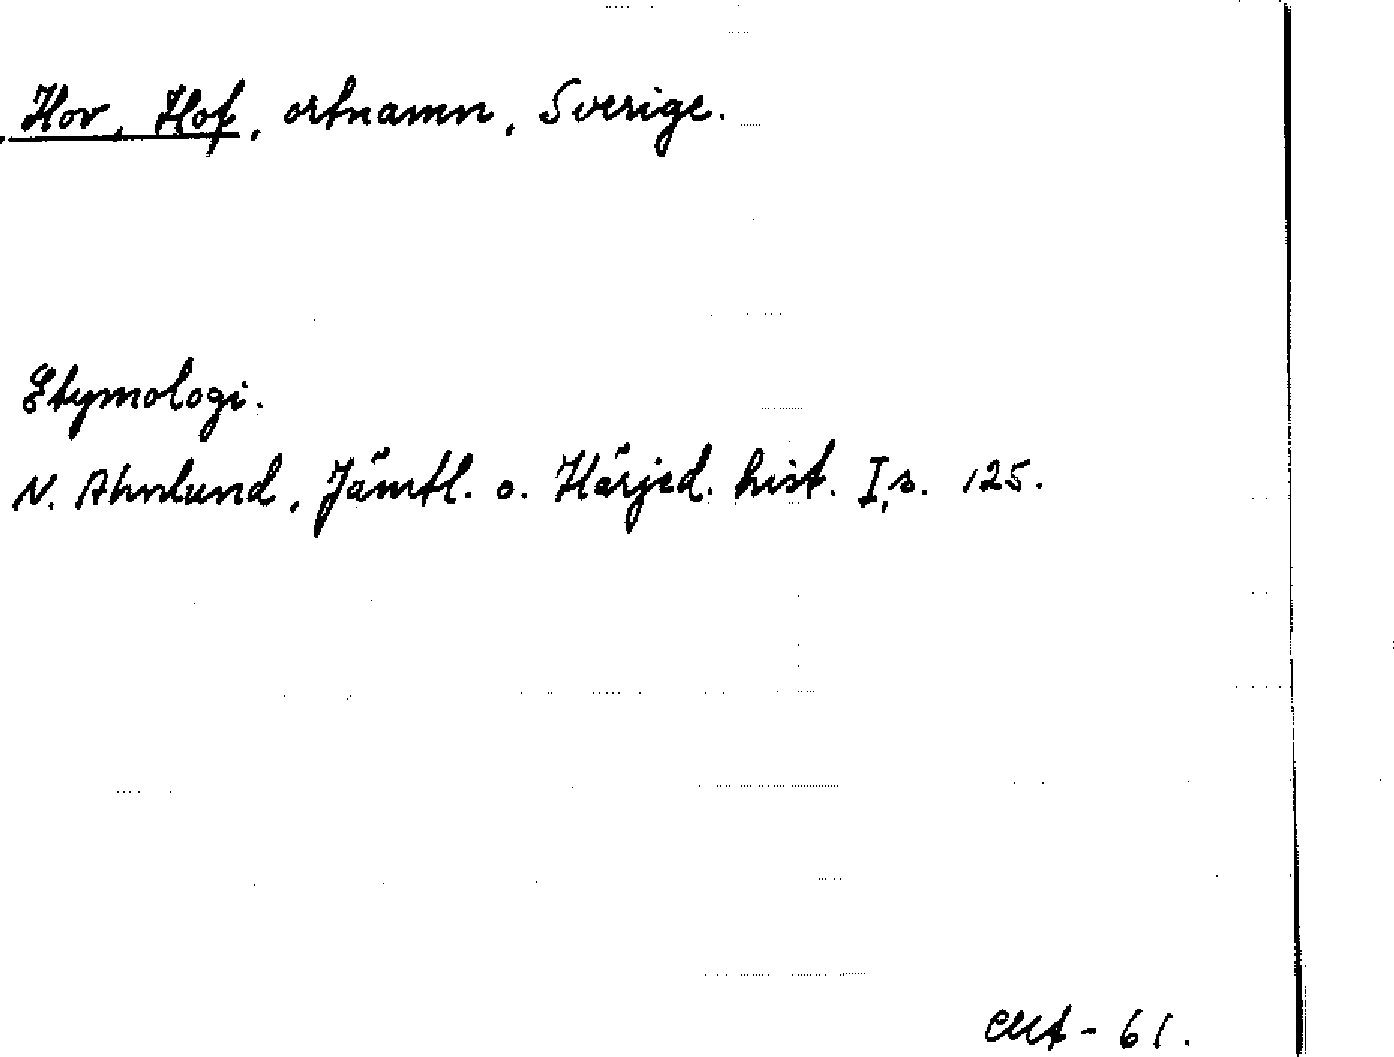 Hov, Hof, ortnamn, Sverige.
Etymologi.
N. Ahnlund, Jämtl. o. Härjed. hist. I, s. 125.
- 61.